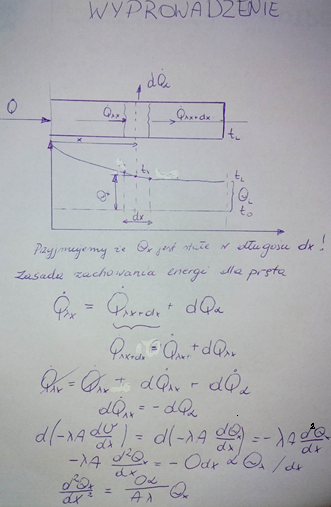 WYPROWADZENIE
dQ̇α
Q Q̇λx Q̇λx+dx
x tL
tx tL
Θx ΘL
dx t0
Przyjmujemy że Θx jest stałe w długości dx!
Zasada zachowania energi dla pręta
Q̇λx = Q̇λx+dx + dQ̇α
Q̇λx+dx = Q̇λx + dQ̇λx
Q̇λx = Q̇λx + dQ̇λx + dQ̇α
dQ̇λx = -dQ̇α
d(-λA dϑ/dx) = d(-λA dΘx/dx) = -λA d²Θx/dx
-λA d²Θx/dx = -Odx α Θx /dx
d²Θx/dx² = Oα/Aλ Θx